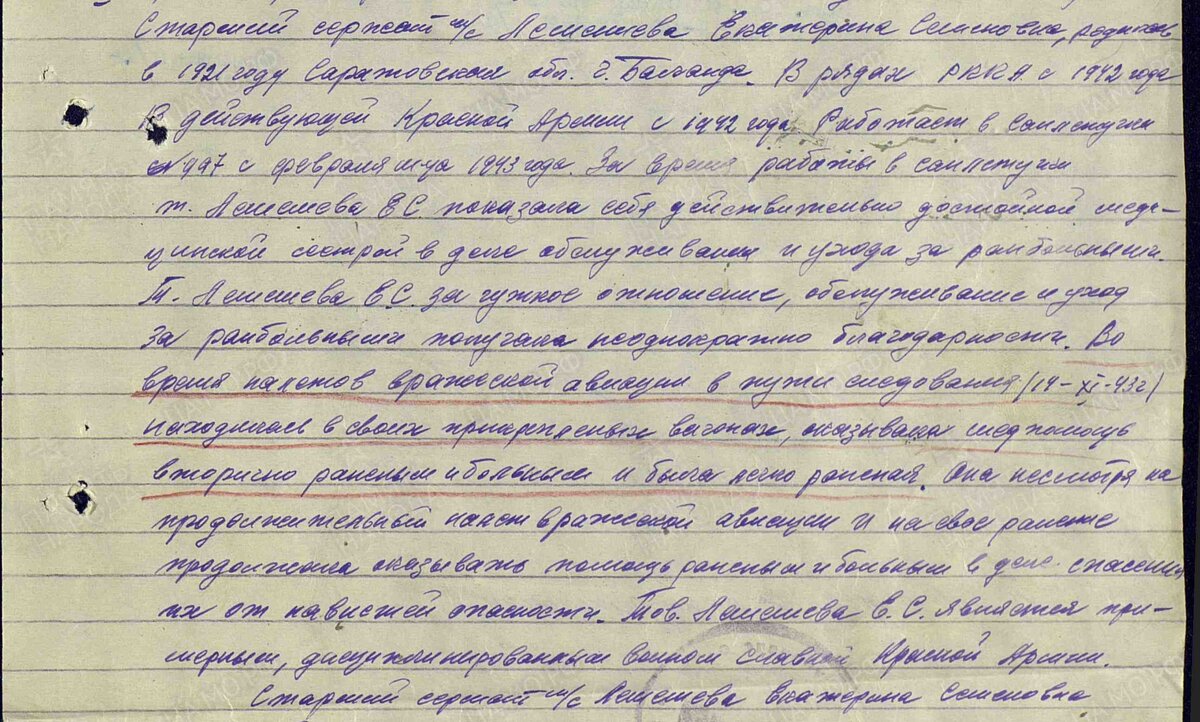 Старший сержант м/с Лемешева Екатерина Семеновна, родилась
в 1921 году Саратовской обл. г. Баланда. В рядах РККА с 1942 года
В действующей Красной Армии с 1942 года. Работает в санлетучке
№ 997 с февраля м-ца 1943 года. За время работы в санлетучке
т. Лемешева Е С. показала себя действительно достойной меди-
цинской сестрой в деле обслуживания и ухода за ранбольными.
Т. Лемешева Е С. за чуткое отношение, обслуживание и уход
за ранбольными получала неоднократно благодарности. Во
время налетов вражеской авиации в пути следования (19-XI-43г)
находилась в своих прикрепленых вагонах, оказывала медпомощь
вторично раненым и больным и была легко раненая. Она несмотря на
продолжительный налет вражеской авиации и на свое ранение
продолжала оказывать помощь раненым и больным в деле спасения
их от нависшей опасности. Тов. Лемешева Е. С. является при-
мерным, дисциплинированным воином славной Красной Армии.
Старший сержант м/с Лемешева Екатерина Семеновна